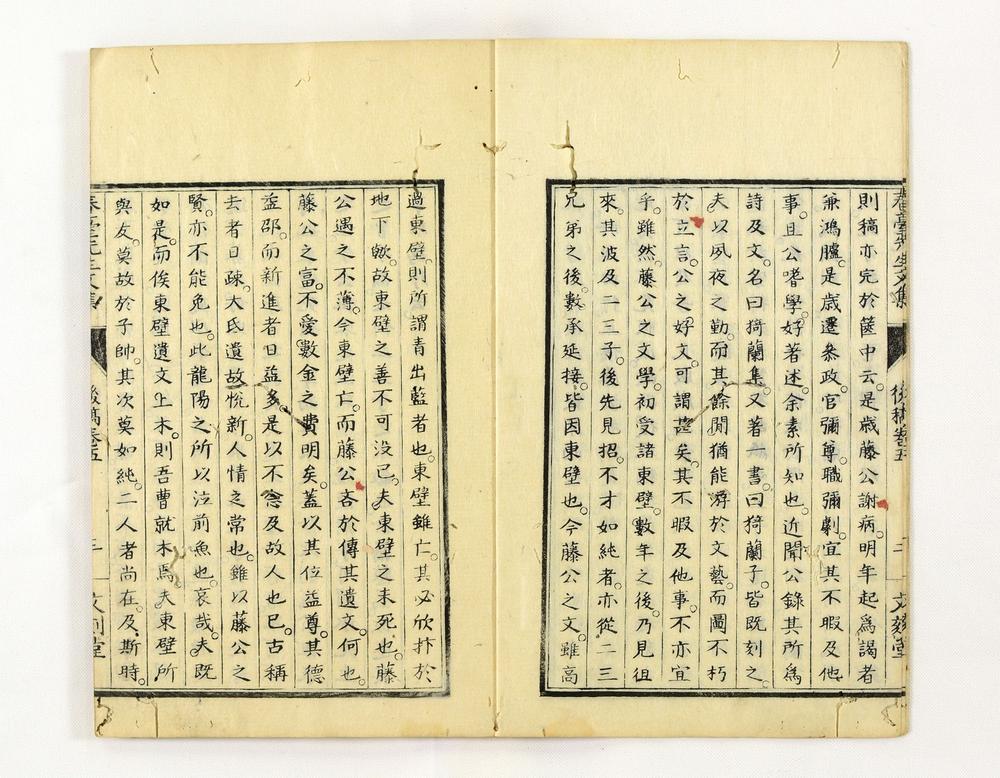 則稿亦完於篋中云。是歲藤公謝病。明年起爲謁者
兼鴻臚。是歲遷參政。官彌尊職彌劇。宜其不暇及他
事。且公嗜學。好著述。余素所知也。近聞公錄其所爲
詩及文。名曰猗蘭集。又著一書。曰猗蘭子。皆既刻之。
夫以夙夜之勤。而其餘閒猶能游於文藝。而圖不朽
於立言。公之好文。可謂甚矣。其不暇及他事。不亦宜
乎。雖然。藤公之文學。初受諸東壁。數年之後。乃見徂
來。其波及二三子。後先見招。不才如純者。亦從二三
兄弟之後。數承延接。皆因東壁也。今藤公之文。雖高
過東壁。則所謂青出藍者也。東壁雖亡。其必欣抃於
地下歟。故東壁之善不可没已。夫東壁之未死也。藤
公遇之不薄。今東壁亡。而藤公吝於傳其遺文。何也。
藤公之富。不愛數金之費明矣。蓋以其位益尊。其德
益邵。而新進者日益多。是以不念及故人也已。古稱
去者日疎。大氐遺故悅新。人情之常也。雖以藤公之
賢。亦不能免也。此龍陽之所以泣前魚也。哀哉。夫既
如是。而俟東壁遺文上木。則吾曹就木焉。夫東壁所
與友。莫故於子帥。其次莫如純。二人者尚在。及斯時。
後稿卷五